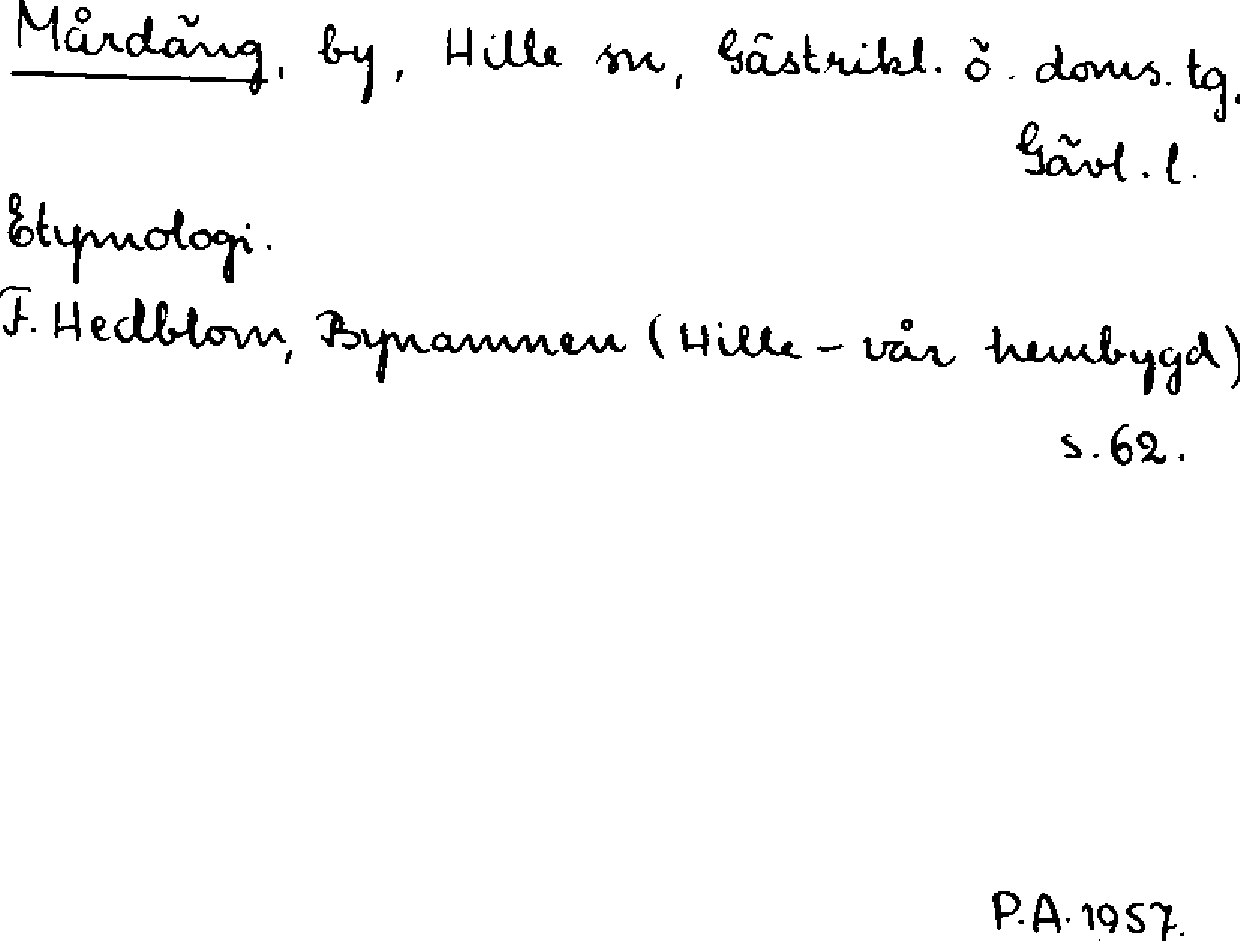 Mårdäng, by, Hille sn, Gästrikl. ö. doms. tg.
Gävl. l.
Etymologi.
F. Hedblom, Bynamnen (Hille – vår hembygd)
s. 62.
P.A. 1957.